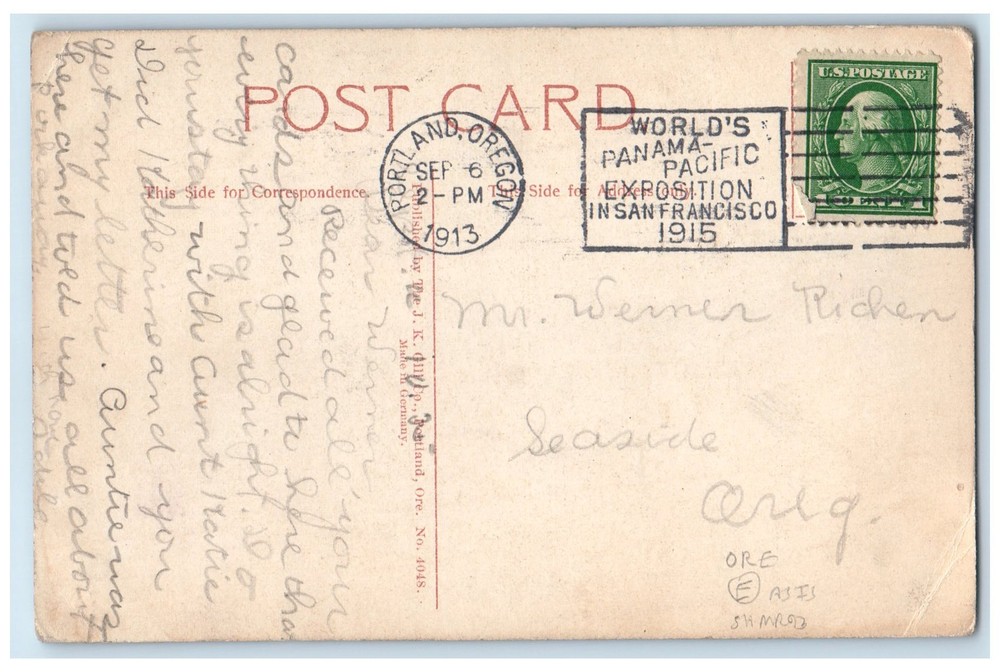 POST CARD
This Side for Correspondence.
This Side for Address only.
PORTLAND, OREGON
SEP 6
2-PM
1913
WORLD'S
PANAMA-
PACIFIC
EXPOSITION
IN SAN FRANCISCO
1915
U.S. POSTAGE
1
Published by The J. K. Gill Co., Portland, Ore. No. 4048.
Made in Germany.
Dear Werner
Received all your
cards and glad to hear that
every thing is alright. Do
you stay with Aunt Katie
Did Katherine and you
get my letter. Auntie was
here and told us all about
Mr. Werner Richen
Seaside
Oreg.
ORE
E AS IS